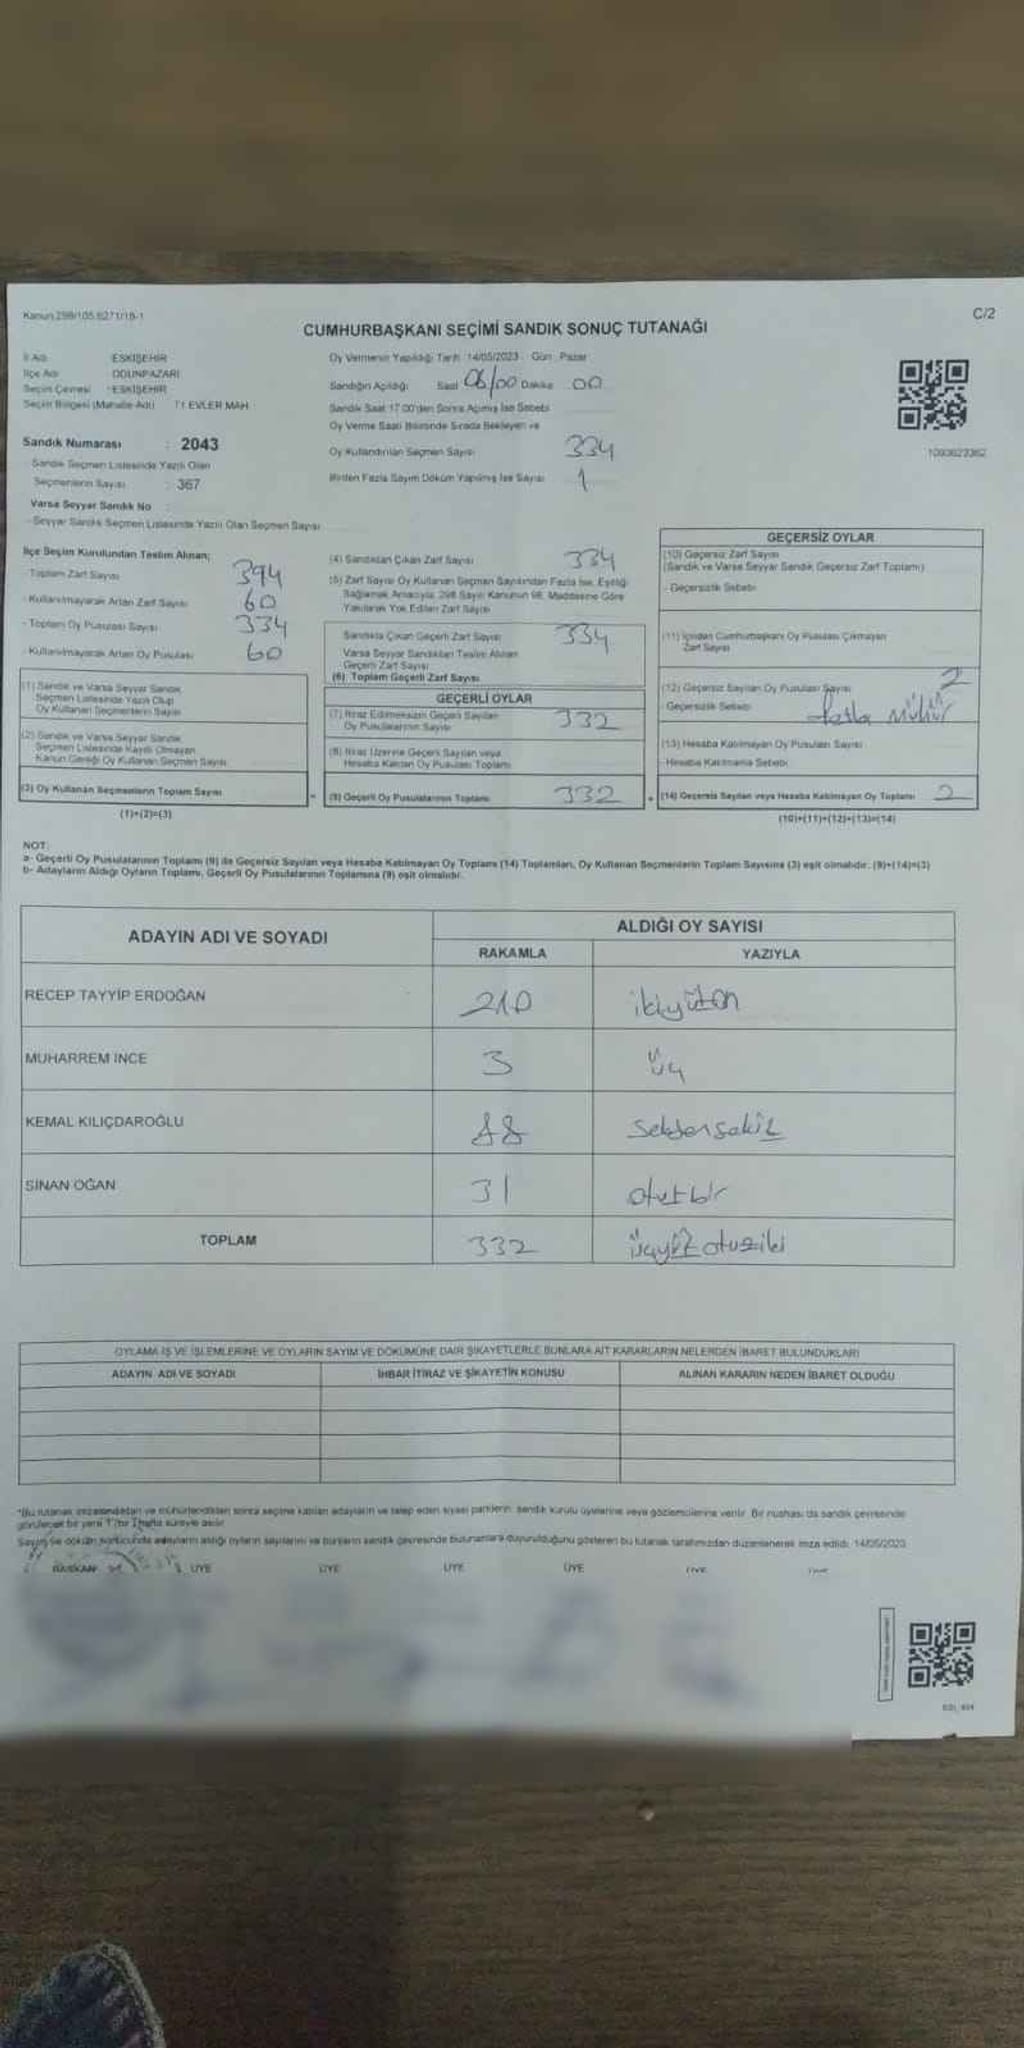 Kanun 298/105.6271/18-1
C/2
CUMHURBAŞKANI SEÇİMİ SANDIK SONUÇ TUTANAĞI
İl Adı ESKİŞEHİR
İlçe Adı ODUNPAZARI
Seçim Çevresi : ESKİŞEHİR
Seçim Bölgesi (Mahalle Adı) 71 EVLER MAH.
Sandık Numarası : 2043
Sandık Seçmen Listesinde Yazılı Olan
Seçmenlerin Sayısı : 367
Varsa Seyyar Sandık No :
- Seyyar Sandık Seçmen Listesinde Yazılı Olan Seçmen Sayısı
Oy Vermenin Yapıldığı Tarih 14/05/2023 Gün : Pazar
Sandığın Açıldığı Saat 06/00 Dakika 00
Sandık Saat 17:00'den Sonra Açılmış İse Sebebi
Oy Verme Saati Bitiminde Sırada Bekleyen ve
Oy Kullandırılan Seçmen Sayısı 334
Birden Fazla Sayım Döküm Yapılmış İse Sayısı 1
1093623362
İlçe Seçim Kurulundan Teslim Alınan;
Toplam Zarf Sayısı 394
- Kullanılmayarak Artan Zarf Sayısı 60
- Toplam Oy Pusulası Sayısı 334
- Kullanılmayarak Artan Oy Pusulası 60
(1) Sandık ve Varsa Seyyar Sandık
Seçmen Listesinde Yazılı Olup
Oy Kullanan Seçmenlerin Sayısı
(2) Sandık ve Varsa Seyyar Sandık
Seçmen Listesinde Kayıtlı Olmayan
Kanun Gereği Oy Kullanan Seçmen Sayısı
(3) Oy Kullanan Seçmenlerin Toplam Sayısı
(1)+(2)=(3)
(4) Sandıktan Çıkan Zarf Sayısı 334
(5) Zarf Sayısı Oy Kullanan Seçmen Sayısından Fazla İse, Eşitliği
Sağlamak Amacıyla, 298 Sayılı Kanunun 98. Maddesine Göre
Yakılarak Yok Edilen Zarf Sayısı
Sandıkta Çıkan Geçerli Zarf Sayısı 334
Varsa Seyyar Sandıktan Teslim Alınan
Geçerli Zarf Sayısı
(6) Toplam Geçerli Zarf Sayısı
GEÇERLİ OYLAR
(7) İtiraz Edilmeksizin Geçerli Sayılan
Oy Pusulalarının Sayısı 332
(8) İtiraz Üzerine Geçerli Sayılan veya
Hesaba Katılan Oy Pusulası Toplamı
(9) Geçerli Oy Pusulalarının Toplamı 332
GEÇERSİZ OYLAR
(10) Geçersiz Zarf Sayısı
(Sandık ve Varsa Seyyar Sandık Geçersiz Zarf Toplamı)
- Geçersizlik Sebebi
(11) İçinden Cumhurbaşkanı Oy Pusulası Çıkmayan
Zarf Sayısı
(12) Geçersiz Sayılan Oy Pusulası Sayısı 2
Geçersizlik Sebebi fazla mühür
(13) Hesaba Katılmayan Oy Pusulası Sayısı
Hesaba Katılmama Sebebi
(14) Geçersiz Sayılan veya Hesaba Katılmayan Oy Toplamı 2
(10)+(11)+(12)+(13)=(14)
NOT:
a- Geçerli Oy Pusulalarının Toplamı (9) ile Geçersiz Sayılan veya Hesaba Katılmayan Oy Toplamı (14) Toplamları, Oy Kullanan Seçmenlerin Toplam Sayısına (3) eşit olmalıdır. (9)+(14)=(3)
b- Adayların Aldığı Oyların Toplamı, Geçerli Oy Pusulalarının Toplamına (9) eşit olmalıdır.
ADAYIN ADI VE SOYADI
ALDIĞI OY SAYISI
RAKAMLA YAZIYLA
RECEP TAYYİP ERDOĞAN 210 ikiyüzon
MUHARREM İNCE 3 üç
KEMAL KILIÇDAROĞLU 88 seksensekiz
SİNAN OĞAN 31 otuzbir
TOPLAM 332 üçyüzotuziki
OYLAMA İŞ VE İŞLEMLERİNE VE OYLARIN SAYIM VE DÖKÜMÜNE DAİR ŞİKAYETLERLE BUNLARA AİT KARARLARIN NELERDEN İBARET BULUNDUKLARI
ADAYIN ADI VE SOYADI İHBAR İTİRAZ VE ŞİKAYETİN KONUSU ALINAN KARARIN NEDEN İBARET OLDUĞU
*Bu tutanak imzalandıktan ve mühürlendikten sonra seçime katılan adayların ve talep eden siyasi partilerin, sandık kurulu üyelerine veya gözlemcilerine verilir. Bir nüshası da sandık çevresinde
görülecek bir yere 1 (bir) hafta süreyle asılır.
Sayım ve döküm sonucunda adayların aldığı oyların sayılarını ve bunların sandık çevresinde bulunanlara duyurulduğunu gösteren bu tutanak tarafımızdan düzenlenerek imza edildi. 14/05/2023
BAŞKAN ÜYE ÜYE ÜYE ÜYE ÜYE ÜYE